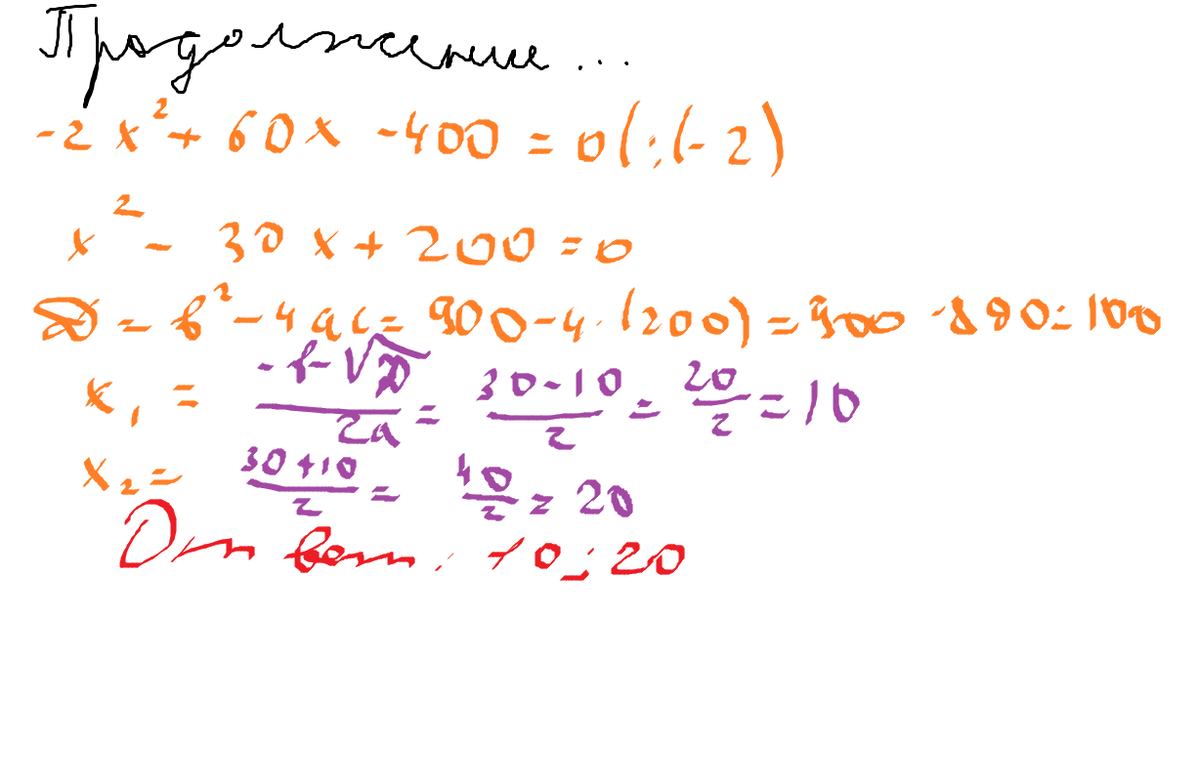 Продолжение...
-2x²+60x-400=0(:(-2)
x²-30x+200=0
D=b²-4ac=900-4·(200)=900-800=100
x₁=(-b-√D)/2a=(30-10)/2=20/2=10
x₂=(30+10)/2=40/2=20
Ответ: 10; 20